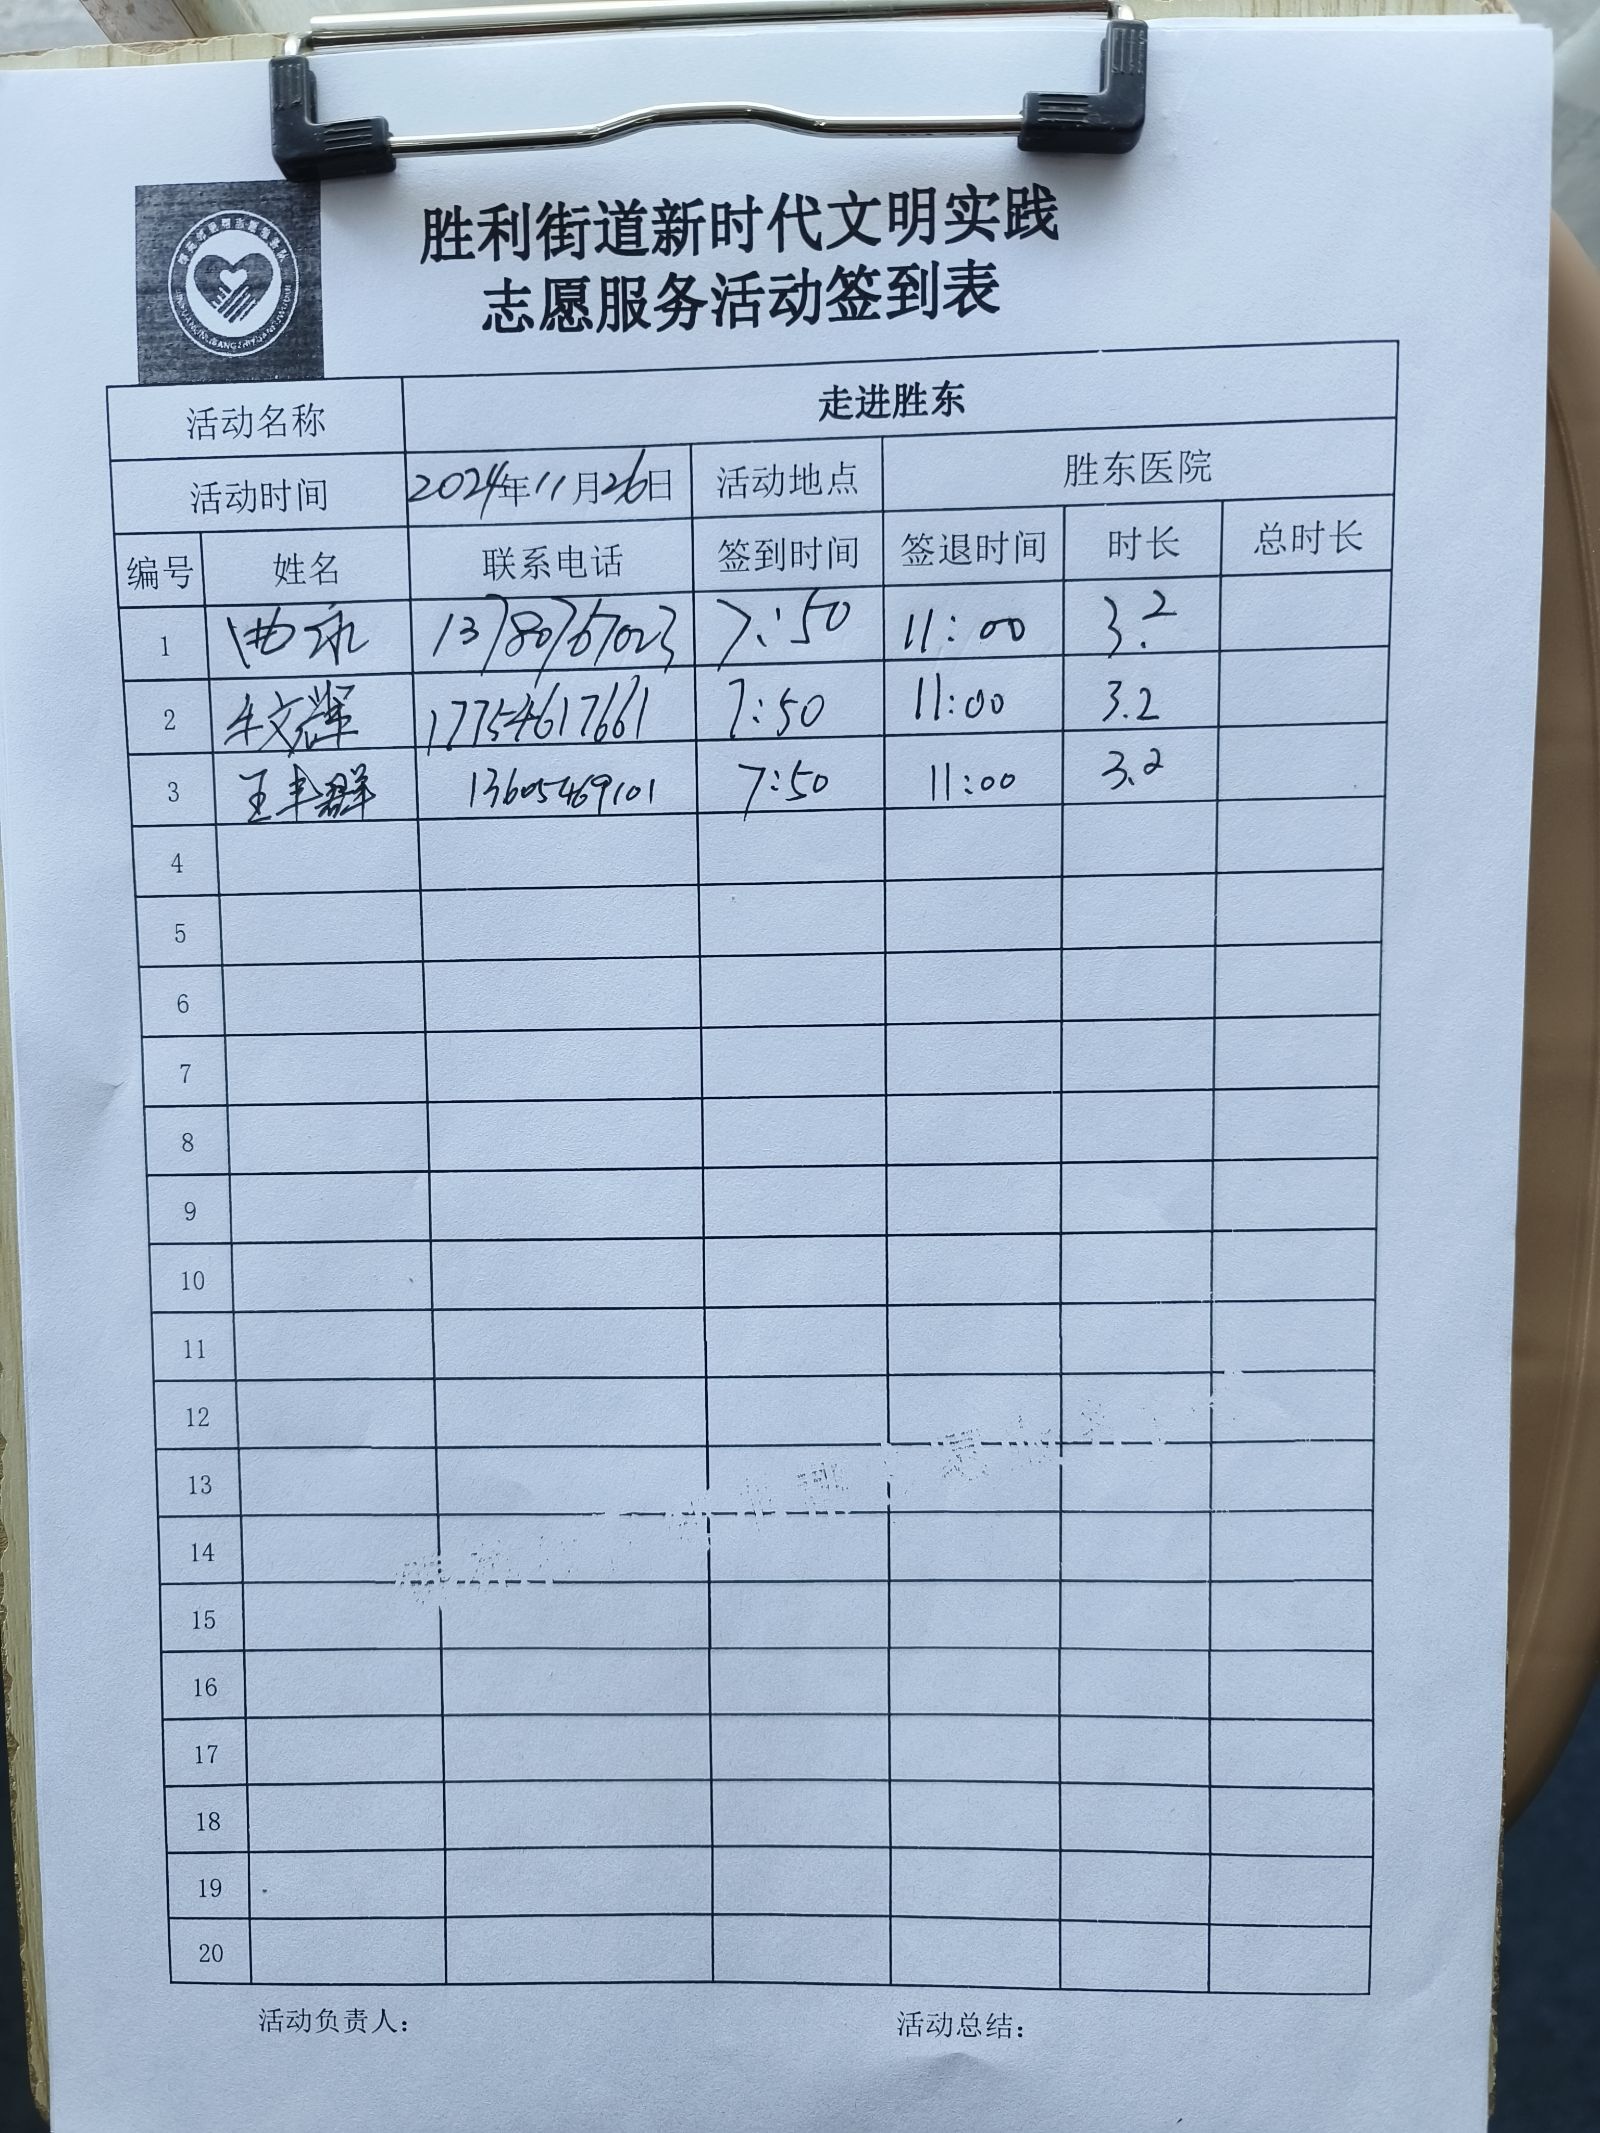 胜利街道新时代文明实践
志愿服务活动签到表
活动名称 走进胜东
活动时间 2024年11月26日 活动地点 胜东医院
编号 姓名 联系电话 签到时间 签退时间 时长 总时长
1 曲永 13780767023 7:50 11:00 3.2
2 牛文辉 17754617661 7:50 11:00 3.2
3 王丰群 13605469101 7:50 11:00 3.2
4
5
6
7
8
9
10
11
12
13
14
15
16
17
18
19
20
活动负责人： 活动总结：